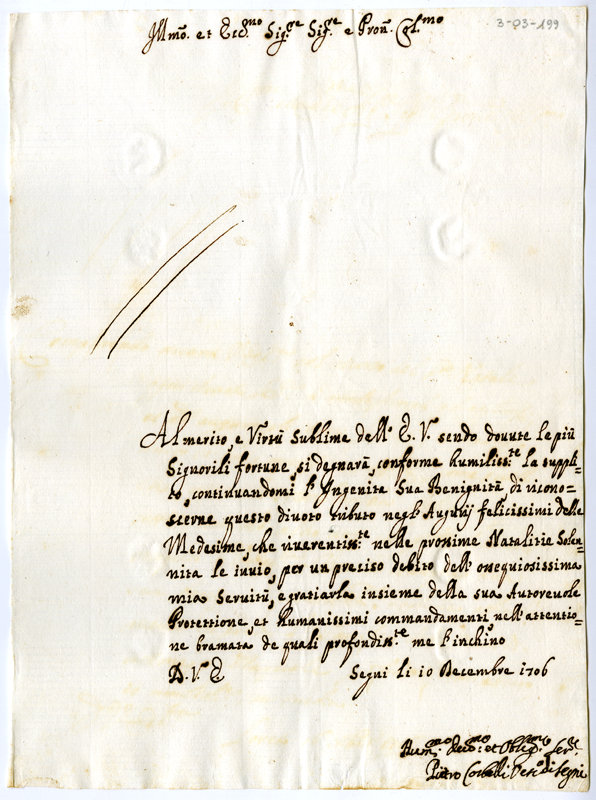 Ill.mo et Ecc.mo Sig.re Sig.re e Pron. Col.mo
3-03-199
Al merito, e Virtù Sublime dell' E. V. sendo douute le più
Signorili fortune, si degnarà, conforme humiliss.te la suppli=
co, continuandomi l'Ingenita Sua Benignità, di ricono=
scerne questo diuoto tributo negl'Augurij felicissimi delle
Medesime, che riuerentiss.te nelle prossime Natalitie Solen=
nità le inuio, per un preciso debito dell'ossequiosissima
mia Seruitù, e gratiarla insieme della sua Autoreuole
Protettione, et humanissimi commandamenti, nell'attentio=
ne bramata de quali profondiss.te me l'inchino
D. V. E Segni li 10 Decembre 1706
Hum.mo Deu.mo et Oblig.mo Ser.re
Pietro Corbelli Vesc.o di Segni